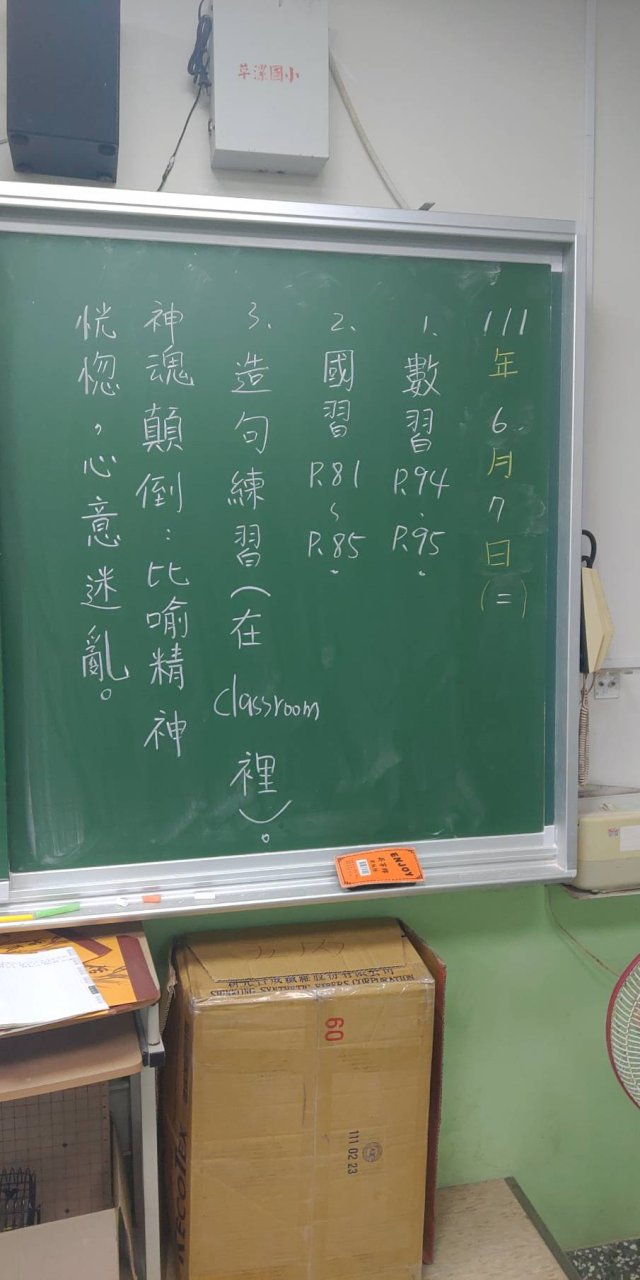 草漯國小
111年6月7日(二)
1.數習P.94、P.95。
2.國習P.81~P.85。
3.造句練習(在classroom裡)。
神魂顛倒:比喻精神
恍惚,心意迷亂。
ENJOY
SHINKONG SYNTHETIC FIBERS CORPORATION
60
111 02 23